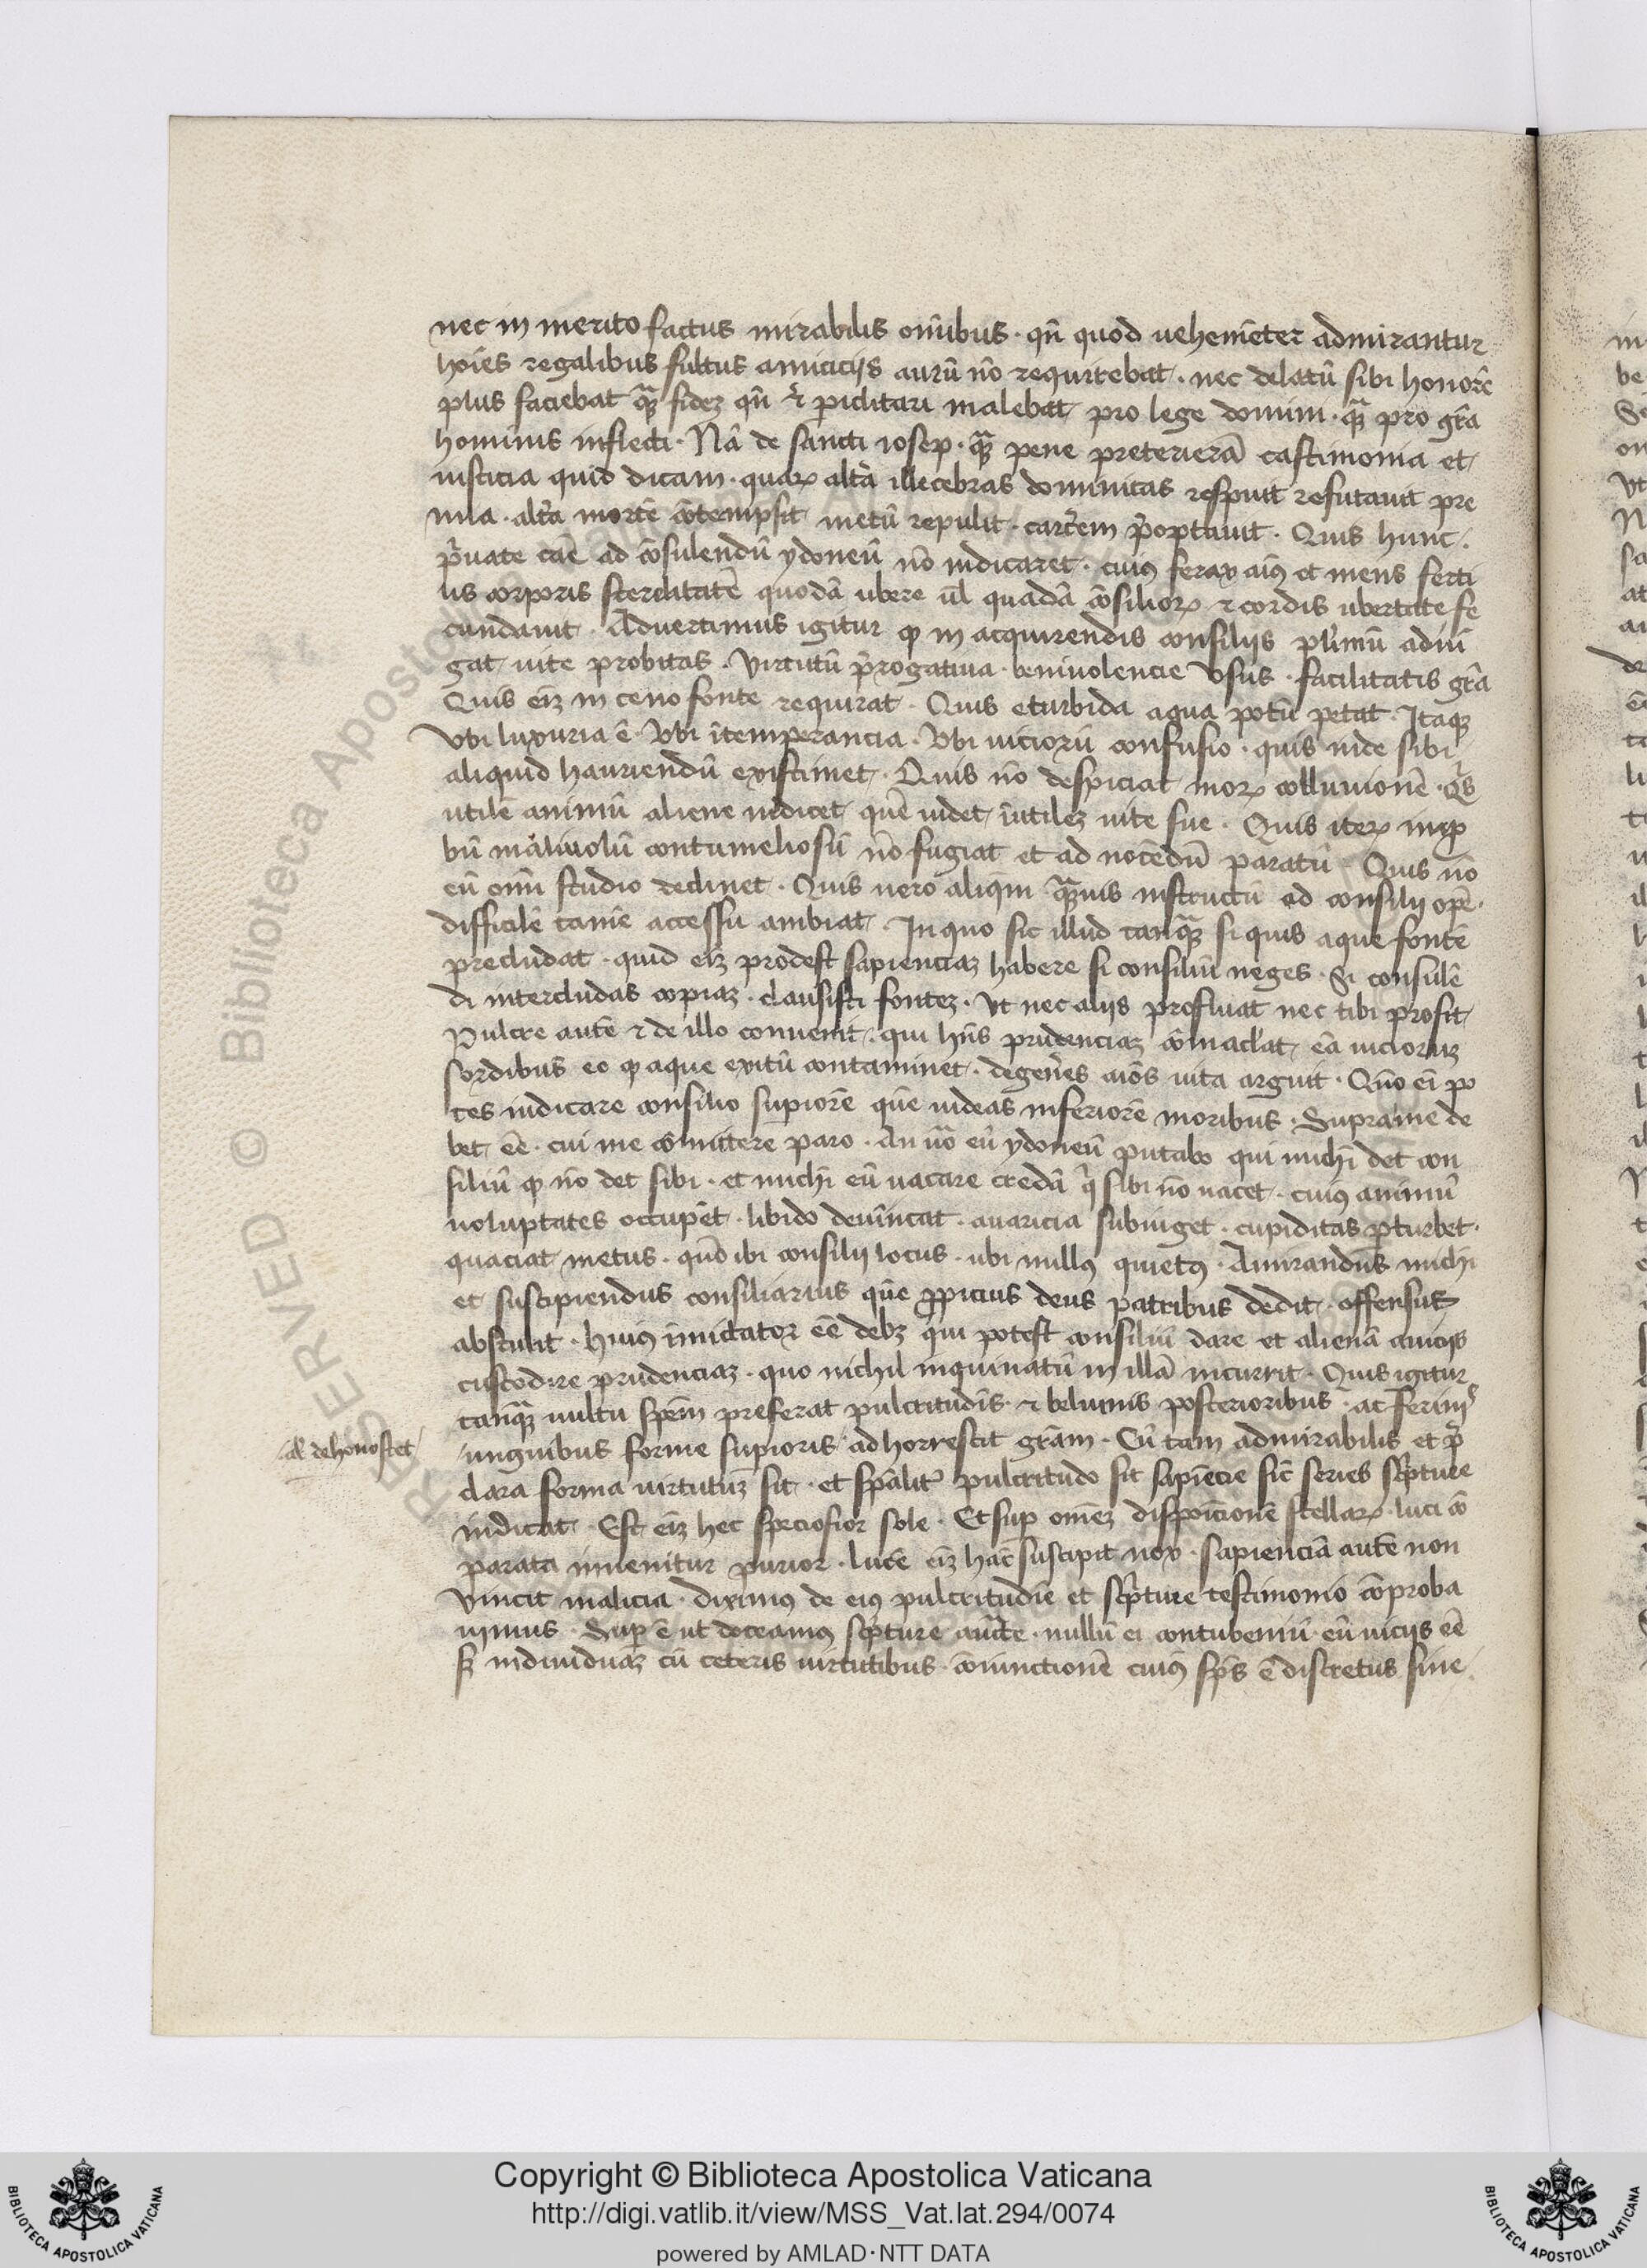 nec in merito factus mirabilis om̄ibus · qn̄ quod uehemēter admirantur
hoīes regalibus fultus amiciciis aurū nō requirebat · nec delatū sibi honorē
plus faciebat qͣꝫ fidez qn̄ et piclitari malebat pro lege domini · qͣꝫ pro gr̄a
hominis inflecti · Nā de sancti iosep · qͣꝫ pene preterierā castimonia et
iusticia quid dicam · quaꝝ altͣa illecebras dominitas respuit refutauit pre
mia · altͣa mortē cōtempsit metū repulit · carcͤem p̄optauit · Quis hunc ·
pͥuate cāe ad cōsulendū ydoneū nō iudicaret · cuiꝰ ferax aīꝰ et mens ferti
lis corporis sterelitatē quodā ubere ul̄ quadā cōsilioꝝ ⁊ cordis ubertate fe
cundauit · Aduertimus igitur ꝙ in acquirendis consiliis plͥmū adiū
gat uite probitas · virtutū p̄rogatiua · beniuolencie vsus · facilitatis gr̄a
Quis eiz in ceno fonte requirat · Quis eturbida aqua potū petat · Itaqꝫ
vbi luxuria ē · vbi ītemperancia · vbi uiciorū confusio · quis inde sibi
aliquid hauriendū existimet · Quis nō despiciat moꝝ colluuionē · qͥs
utilē animū aliene iudicet quē uidet īutilez uite sue · Quis iteꝝ inꝓ
bū maliuolū contumeliosū nō fugiat et ad nocēdū paratū · Quis nō
eū om̄i studio declinet · Quis uero aliqm qͣꝫuis instructū ad consilii opē ·
difficilē tamē accessū ambiat · In quo sic illud tanqͣꝫ si quis aque fontē
precludat · quid eiz prodest sapienciaz habere si consiliū neges · Si consulē
di intercludas copiaz · clausisti fontez · vt nec aliis profluat nec tibi prosit
Pulcre autē ⁊ de illo conuenit · qui hn̄s prudenciaz cōmacl'at eā uicioruz
sordibus eo ꝙ aque exitū contaminet · degen̄es aīōs uita arguit · Qūo ei po
tes iudicare consilio sup̄iorē quē uideas inferiorē moribus · Supra me de
bet eē · cui me cōmittere paro · An uͦo eū ydoneū putabo qui michi det con
siliū ꝙ nō det sibi · et michi eū uacare credā qͥ sibi nō uacet · cuiꝰ animū
uoluptates occupēt · libido deuīncat · auaricia subiuget · cupiditas pturbet ·
quaciat metus · quō ibi consilii locus · ubi nullꝰ quietꝰ · Amirandus michi
et suscipiendus consiliarius quē ꝓpicius deus patribus dedit · offensus
abstulit · huiꝰ imitator eē debꝫ qui potest consiliū dare et alienā aviciis
custodire prudenciaz · quo nichil inquinatū in illā incurrit · Quis igitur
tanqͣꝫ uultu spēm preferat pulcritudīs · ⁊ beluinis posterioribus · ac ferinͥˢ
al' dehonostet
ungnibus forme sup̄ioris adhorrescit gr̄am · Cū tam admirabilis et p̄
clara forma uirtutuz sit · et sp̄alitͬ pulcritudo sit sapiēcie sic̄ series scͥpture
indicat · Est eiz hec speciosior sole · Et sup om̄ez disposicionē stellaꝝ · luci cō
parata inuenitur purior · lucē eiz hāc suscipit nox · sapienciā autē non
vincit malicia · diximꝰ de eiꝰ pulcritudīe et scͥpture testimonio cōproba
uimus · Sup ē ut doceamꝰ scͥpture auc̄te · nullū ei contubeniū eū uiciis eē
sꝫ indiuiduaz cū ceteris uirtutibus · cōiunctionē cuiꝰ sp̄s ē discretus sine
Copyright © Biblioteca Apostolica Vaticana
http://digi.vatlib.it/view/MSS_Vat.lat.294/0074
powered by AMLAD·NTT DATA
BIBLIOTECA APOSTOLICA VATICANA
BIBLIOTECA APOSTOLICA VATICANA
RESERVED © Biblioteca Apostolica